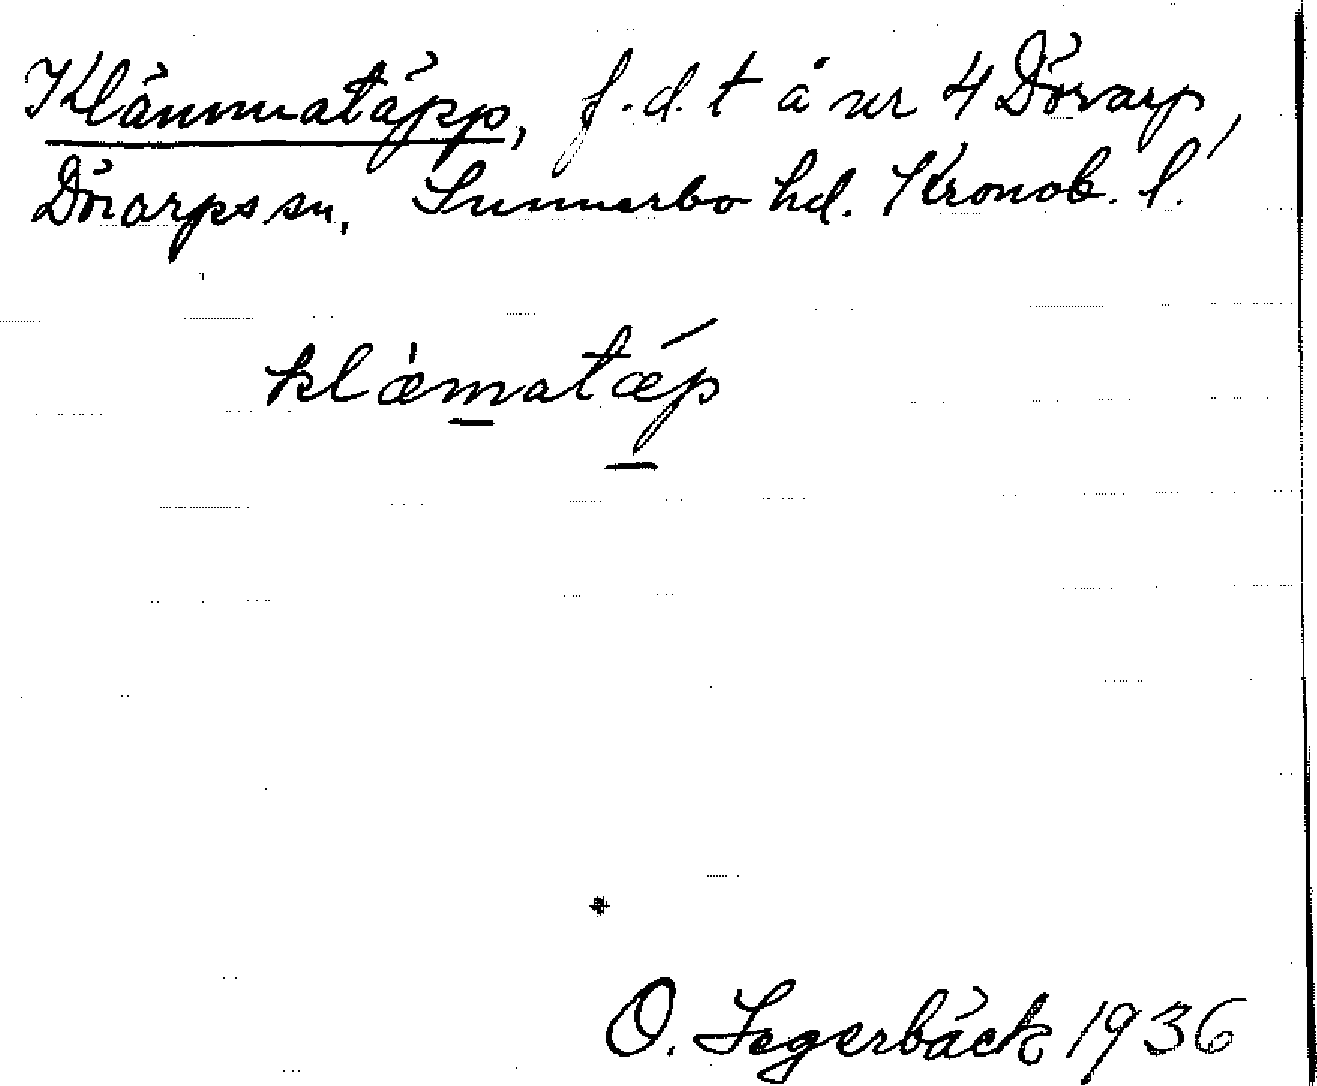 Klämmatäpp, f.d. t å nr 4 Dörarp,
Dörarps sn, Sunnerbo hd. Kronob. l.
klæ̀matǽp
O. Segerbäck 1936